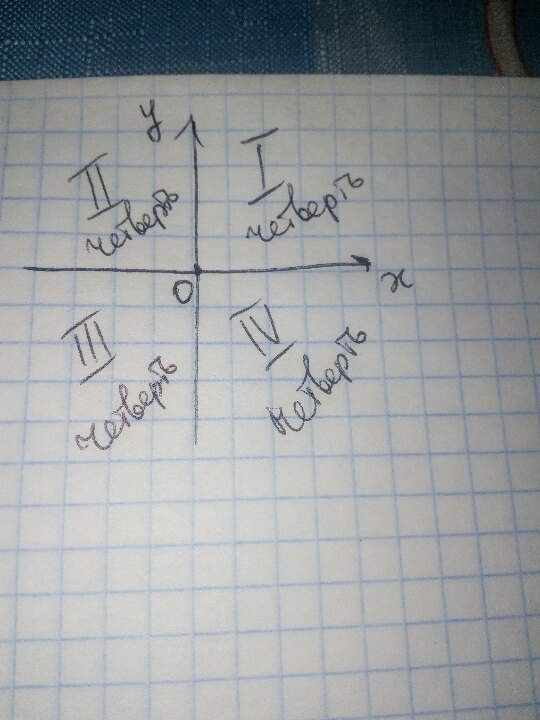 y
II
четверть
I
четверть
0
x
III
четверть
IV
четверть